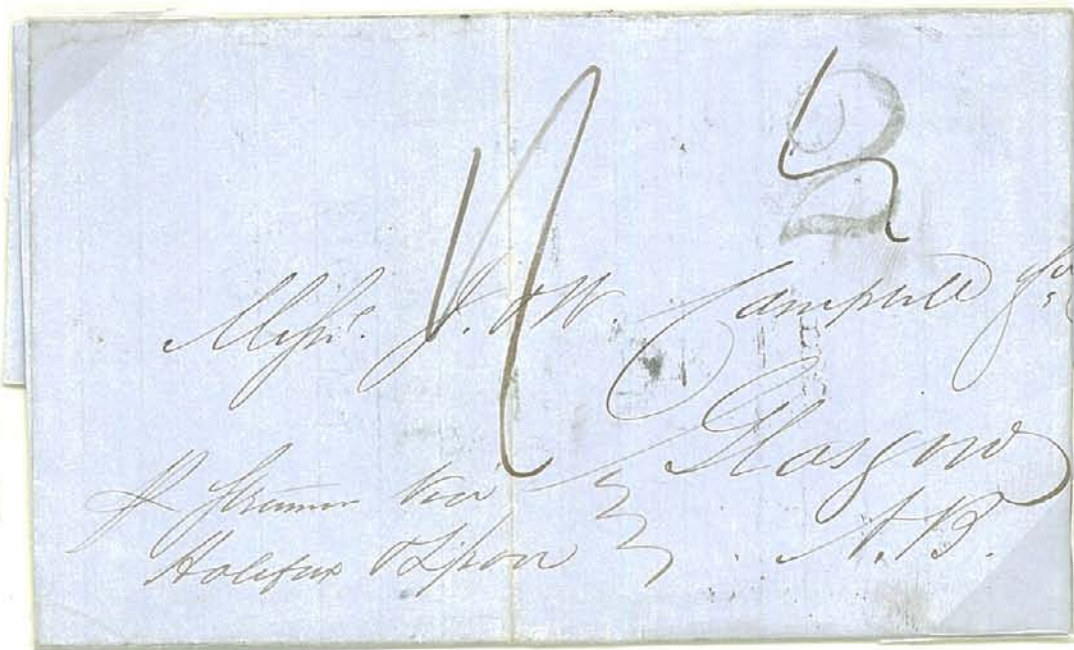 2
Messrs. J. & W. Campbell
Glasgow
N.B.
p Steamer via
Halifax & Lpool